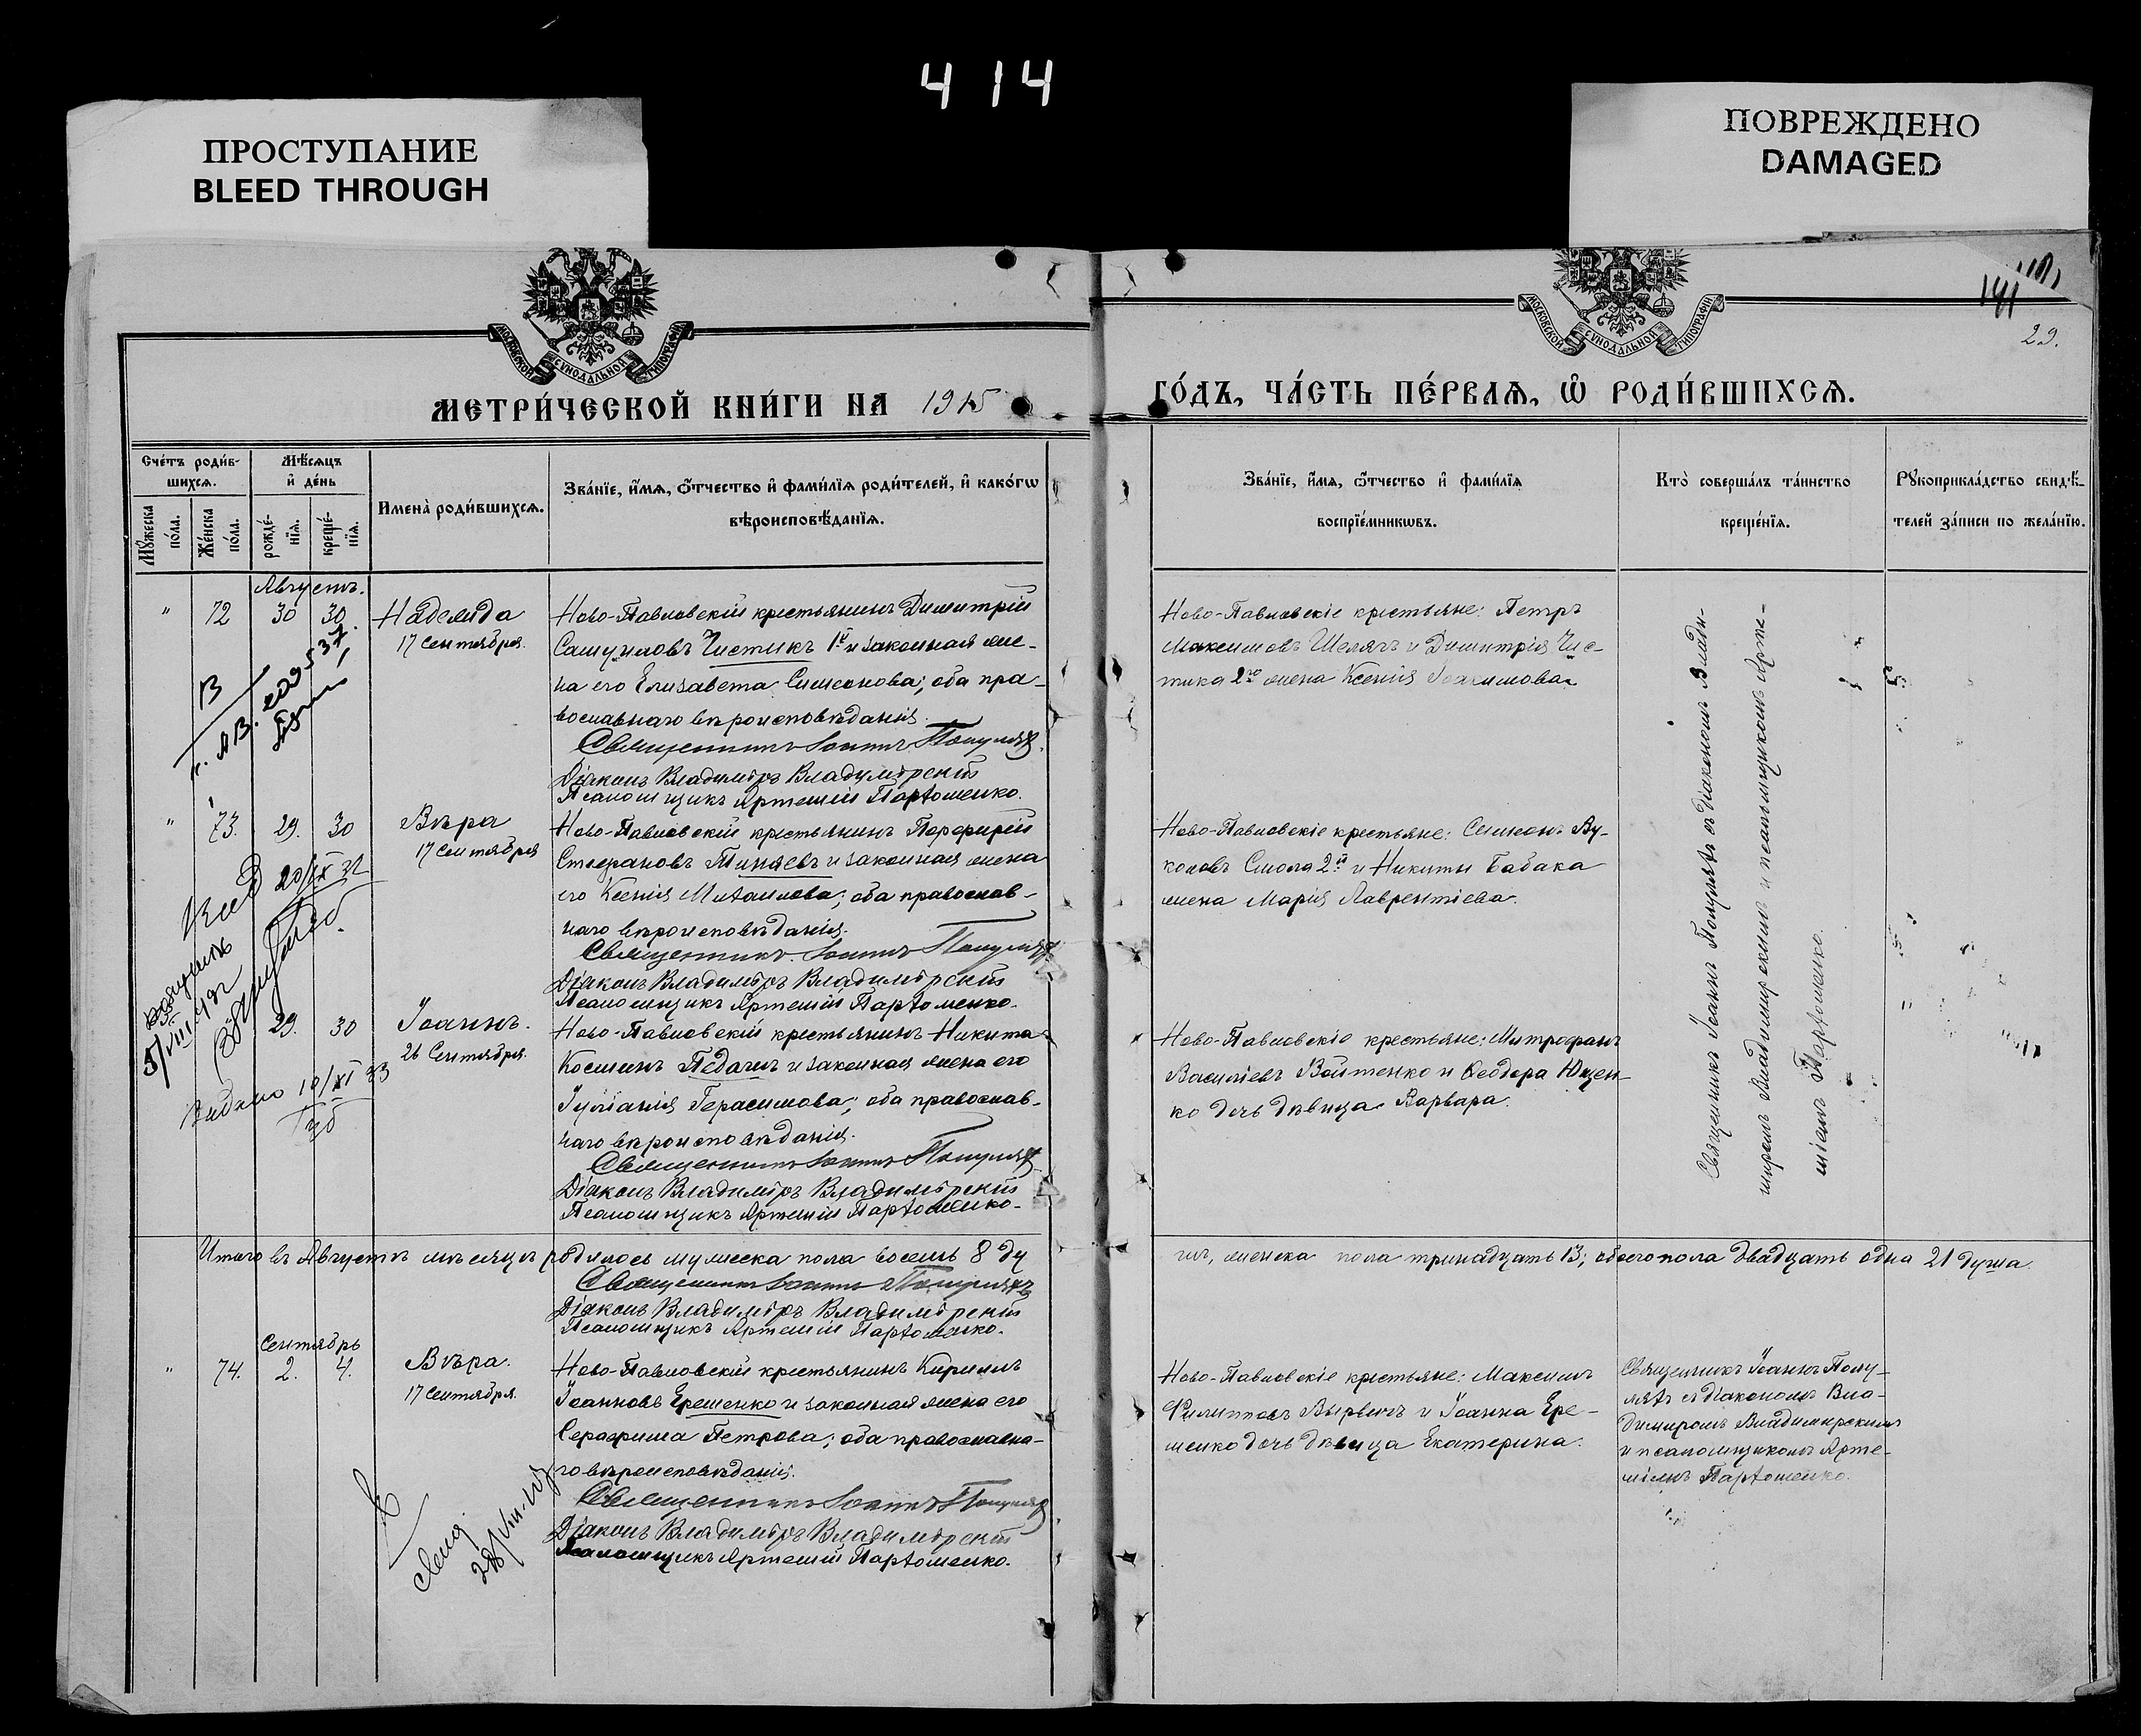 414
ПРОСТУПАНИЕ
BLEED THROUGH
ПОВРЕЖДЕНО
DAMAGED
МОСКОВСКОЙ СѴНОДАЛЬНОЙ ТИПОГРАФІИ
МОСКОВСКОЙ СѴНОДАЛЬНОЙ ТИПОГРАФІИ
141
29.
МЕТРИ́ЧЕСКОЙ КНИ́ГИ НА 1915
ГО́ДЪ, ЧА́СТЬ ПЕ́РВАѦ, Ѡ҆ РОДИ́ВШИХСѦ.
Сче́тъ роди́в-
шихсѧ.
Мꙋ́жеска по́ла.
Же́нска по́ла.
Мѣ́сѧцъ
и҆ де́нь
рожде́-нїѧ.
креще́-нїѧ.
Имена̀ роди́вшихсѧ.
Зва́нїе, и҆́мѧ, ѻ҆́тчество и҆ фами́лїѧ роди́телей, и҆ како́гѡ
вѣроисповѣ́данїѧ.
Зва́нїе, и҆́мѧ, ѻ҆́тчество и҆ фами́лїѧ
воспрїе́мникѡвъ.
Кто̀ соверша́лъ та́инство
креще́нїѧ.
Рꙋкоприкла́дство свидѣ́-
телей за́писи по жела́нїю.
Августъ.
" 72 30 30. Надежда
17 Сентября.
Ново-Павловскій крестьянинъ Димитрій
Самуиловъ Чистикъ 1й и законная же-
на его Елизавета Симеонова; оба пра-
вославнаго вѣроисповѣданія.
Священникъ Іоаннъ Полулях
Діаконъ Владиміръ Владимірскій
Псаломщикъ Артемій Пархоменко.
Ново-Павловскіе крестьяне: Петръ
Максимовъ Шелягъ и Димитрія Чис-
тика 2го жена Ксенія Іоакимова.
" 73. 29. 30 Вѣра
17 Сентября
Ново-Павловскій крестьянинъ Порфирій
Стефановъ Тиняевъ и законная жена
его Ксенія Михаилова; оба православ-
наго вѣроисповѣданія.
Священникъ Іоаннъ Полулях
Діаконъ Владиміръ Владимірскій
Псаломщикъ Артемій Пархоменко.
Ново-Павловскіе крестьяне: Симеонъ Ву-
коловъ Смола 2й и Никиты Бабака
жена Марія Лаврентіева.
29. 30 Іоаннъ.
26 Сентября.
Ново-Павловскій крестьянинъ Никита
Косминъ Педачъ и законная жена его
Іуліанія Герасимова; оба православ-
наго вѣроисповѣданія.
Священникъ Іоаннъ Полулях
Діаконъ Владиміръ Владимірскій
Псаломщикъ Артемій Пархоменко.
Ново-Павловскіе крестьяне: Митрофанъ
Василіевъ Войтенко и Ѳеодора Ющен-
ко дочь дѣвица Варвара.
Священникъ Іоаннъ Полуляхъ съ діакономъ Влади-
миромъ Владимирскимъ и псаломщикомъ Арте-
міемъ Пархоменко.
Итого въ Августѣ мѣсяцѣ родилось мужеска пола восемь 8 ду
шъ, женска пола тринадцать 13; обоего пола двадцать одна 21 душа.
Священникъ Іоаннъ Полуляхъ
Діаконъ Владиміръ Владимірскій
Псаломщикъ Артемій Пархоменко.
Сентябрь
" 74. 2. 4. Вѣра.
17 Сентября.
Ново-Павловскій крестьянинъ Кириллъ
Іоанновъ Ерешенко и законная жена его
Серафима Петрова; оба православна-
го вѣроисповѣданія.
Священникъ Іоаннъ Полулях
Діаконъ Владиміръ Владимірскій
Псаломщикъ Артемій Пархоменко.
Ново-Павловскіе крестьяне: Максимъ
Филипповъ Вырвичъ и Іоанна Ере-
шенко дочь дѣвица Екатерина.
Священникъ Іоаннъ Полу-
ляхъ съ діакономъ Вла-
димиромъ Владимирскимъ
и псаломщикомъ Арте-
міемъ Пархоменко.
20/IX 22
5/VIII
Видано 10/XI 23